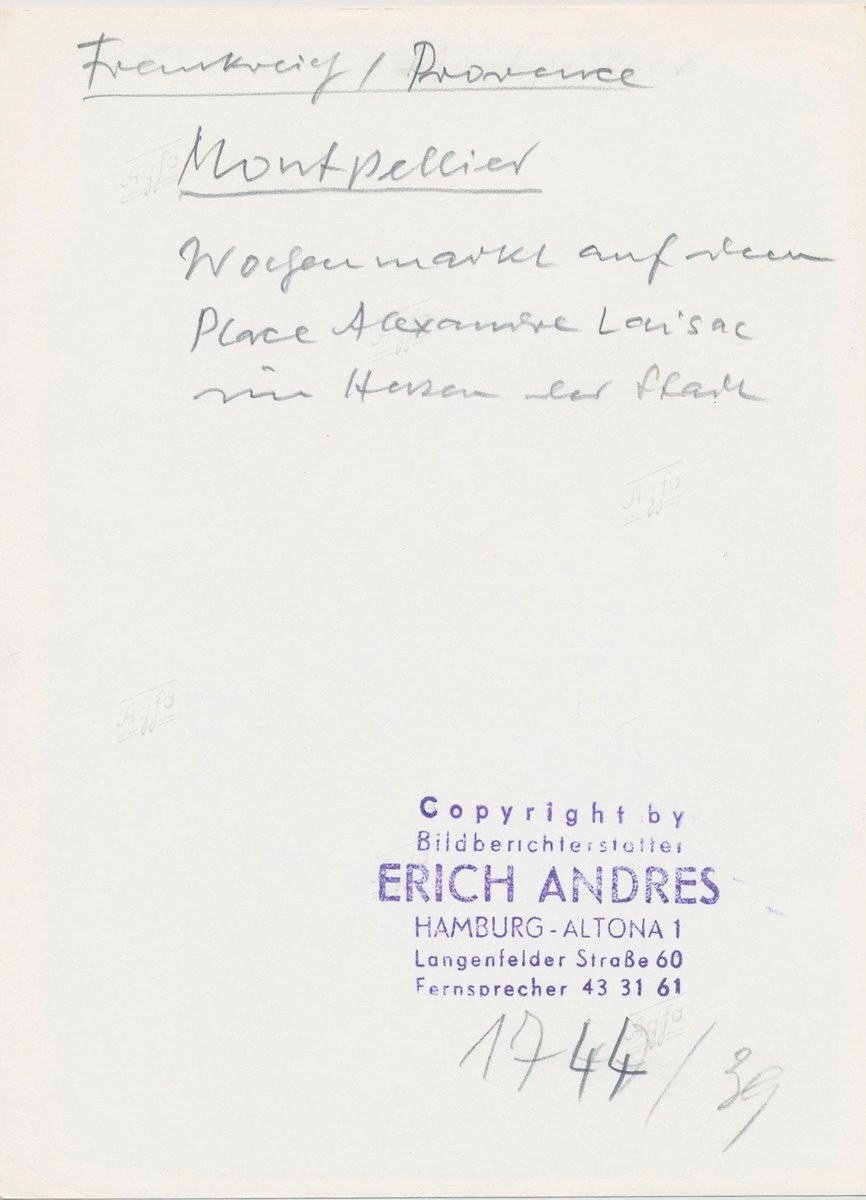 Frankreich / Provence
Montpellier
Wochenmarkt auf dem
Place Alexandre Laisac
im Herzen der Stadt
Agfa
Agfa
Agfa
Agfa
Agfa
Copyright by
Bildberichterstatter
ERICH ANDRES
HAMBURG-ALTONA 1
Langenfelder Straße 60
Fernsprecher 43 31 61
1744/39